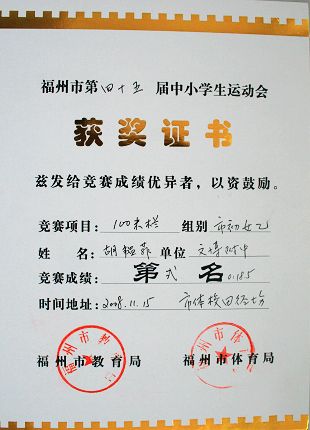 福州市第四十五届中小学生运动会
获奖证书
兹发给竞赛成绩优异者，以资鼓励。
竞赛项目：100米栏 组别 市初女乙
姓 名：胡 单位 文博附中
竞赛成绩： 第 弍 名
时间地址：2008.11.15 市体校田径场
福州市教育局 福州市体育局